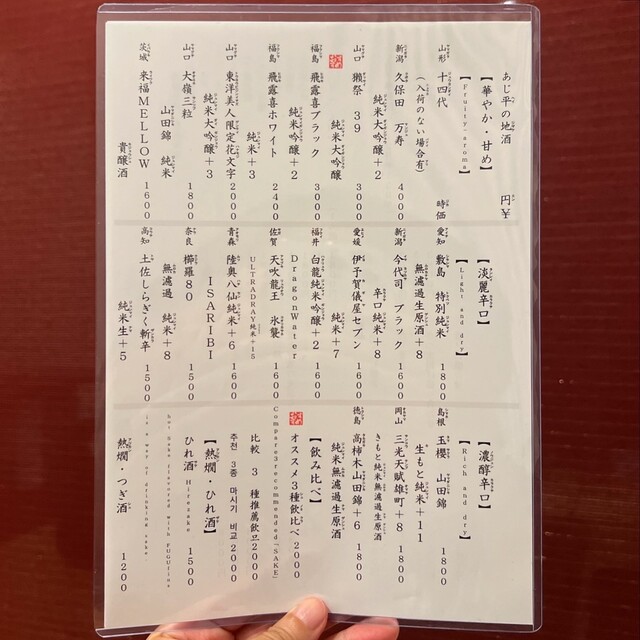 あじ平の地酒 円¥
【華やか・甘め】
【Fruity-aroma】
山形 十四代 時価
(入荷のない場合有)
新潟 久保田 万寿 4000
純米大吟醸+2
山口 獺祭 39 3000
純米大吟醸
福島 飛露喜ブラック 3000
純米大吟醸+2
福島 飛露喜ホワイト 2400
純米+3
山口 東洋美人限定花文字 2000
純米大吟醸+3
山口 大嶺三粒 1800
山田錦 純米
茨城 来福MELLOW 1600
貴醸酒
【淡麗辛口】
【Light and dry】
愛知 敷島 特別純米 1800
無濾過生原酒+8
新潟 今代司 ブラック 1600
辛口純米+8
愛媛 伊予賀儀屋セブン 1600
純米+7
福井 白龍純米吟醸+2 1600
DragonWater
佐賀 天吹龍王 氷襲 1600
ULTRADRAY純米+15
青森 陸奥八仙純米+6 1600
ISARIBI
奈良 櫛羅80 1500
無濾過 純米+8
高知 土佐しらぎく斬辛 1500
純米生+5
【濃醇辛口】
【Rich and dry】
島根 玉櫻 山田錦 1800
生もと純米+11
岡山 三光天賦雄町+8 1800
きもと純米無濾過生原酒
徳島 高柿木山田錦+6 1800
純米無濾過生原酒
【飲み比べ】
オススメ3種飲比べ2000
Compare3recommended「SAKE」
比較 3 種推薦飲品2000
추천 3종 마시기 비교2000
【熱燗・ひれ酒】
ひれ酒 Hirezake 1500
hot Sake flavored with FUGUfins
熱燗・つぎ酒 1200
is a way of drinking sake.